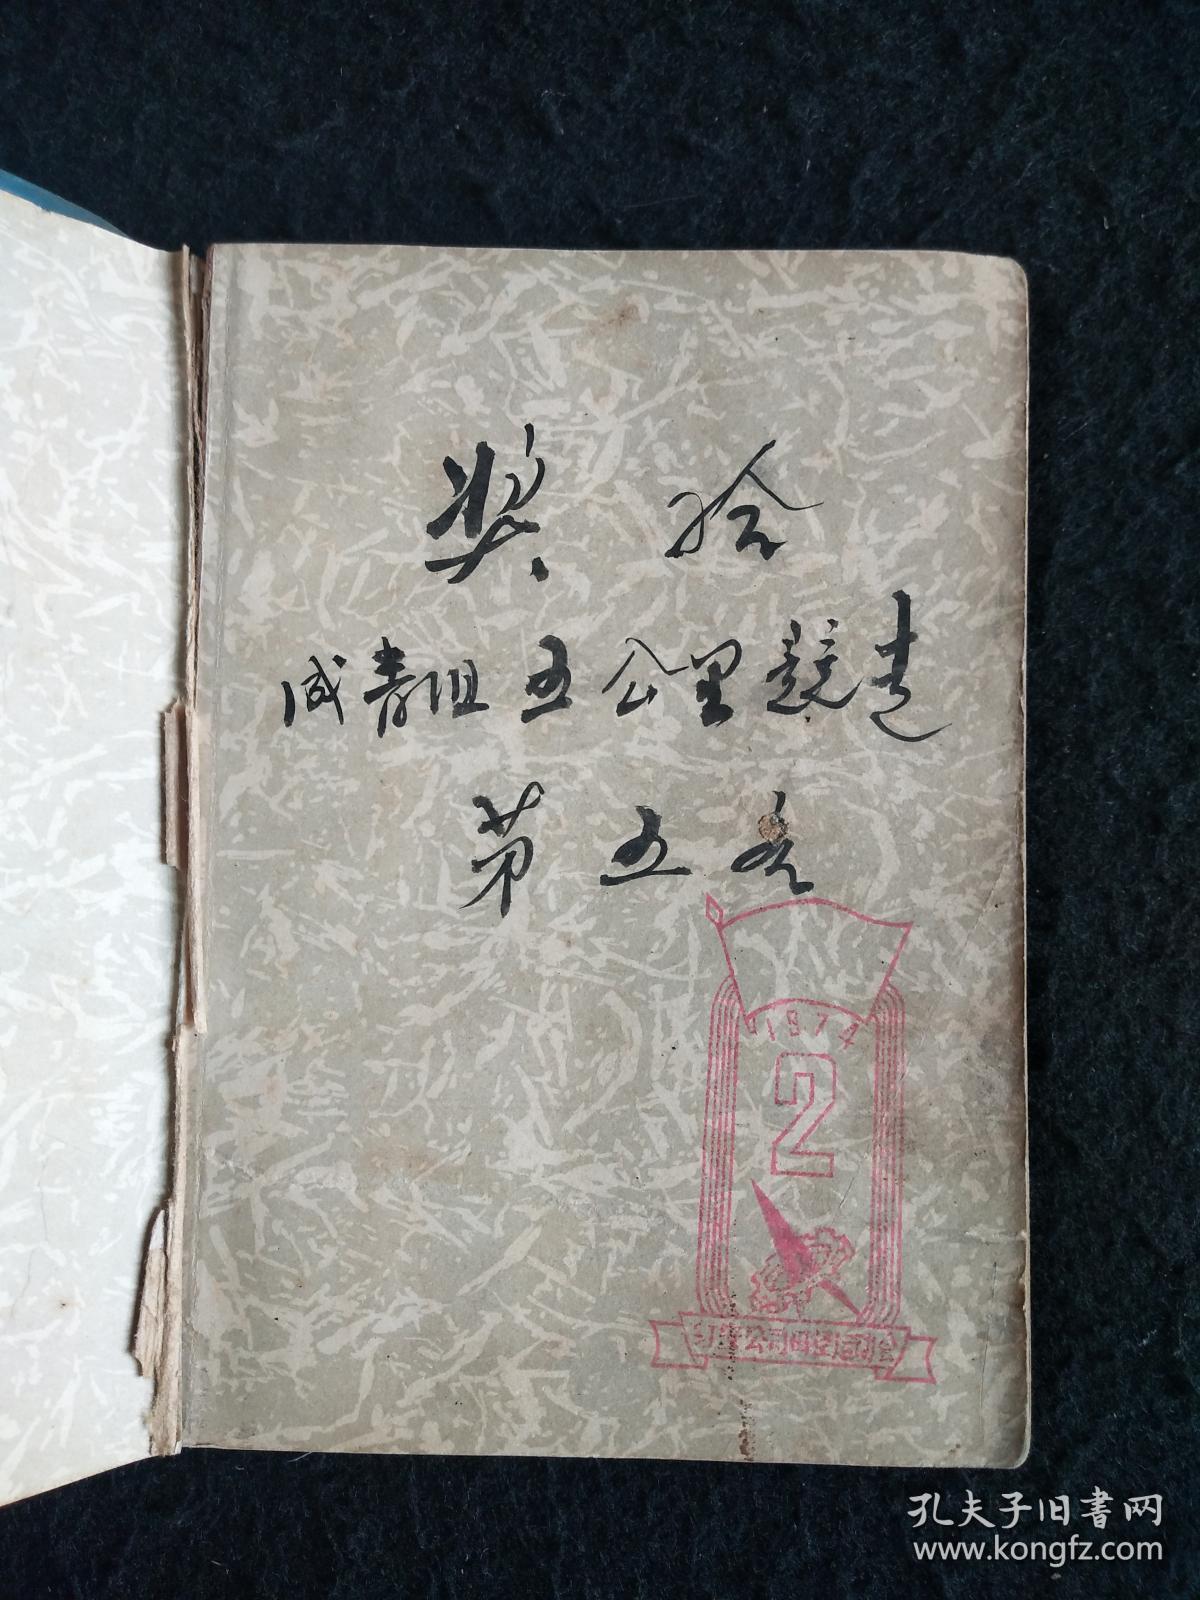 奖给
成青组五公里競走
第五名
1974
2
奖
公司田径运动会
孔夫子旧書网
www.kongfz.com